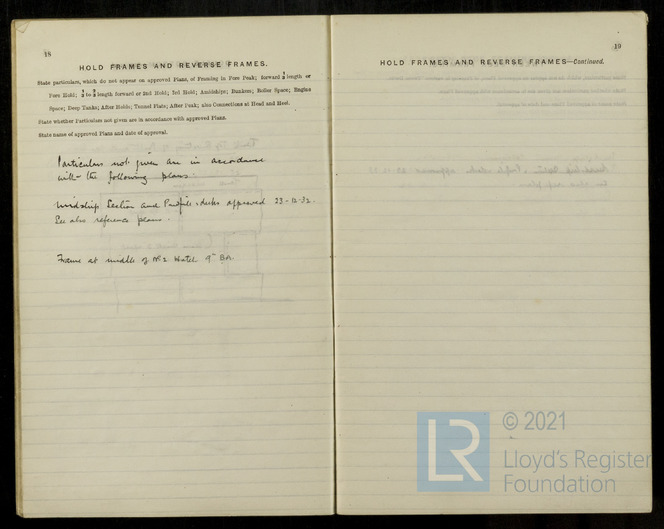 18
HOLD FRAMES AND REVERSE FRAMES.
State particulars, which do not appear on approved Plans, of Framing in Fore Peak; forward 3/5 length or
Fore Hold; 3/5 to 3/4 length forward or 2nd Hold; 3rd Hold; Amidships; Bunkers; Boiler Space; Engine
Space; Deep Tanks; After Holds; Tunnel Flats; After Peak; also Connections at Head and Heel.
State whether Particulars not given are in accordance with approved Plans.
State name of approved Plans and date of approval.
Particulars not given are in accordance
with the following plans:
Midship Section and Profile & decks approved 23-12-32.
See also reference plans.
Frame at middle of No 2 Hatch 9" BA.
19
HOLD FRAMES AND REVERSE FRAMES—Continued.
LR
© 2021
Lloyd's Register
Foundation